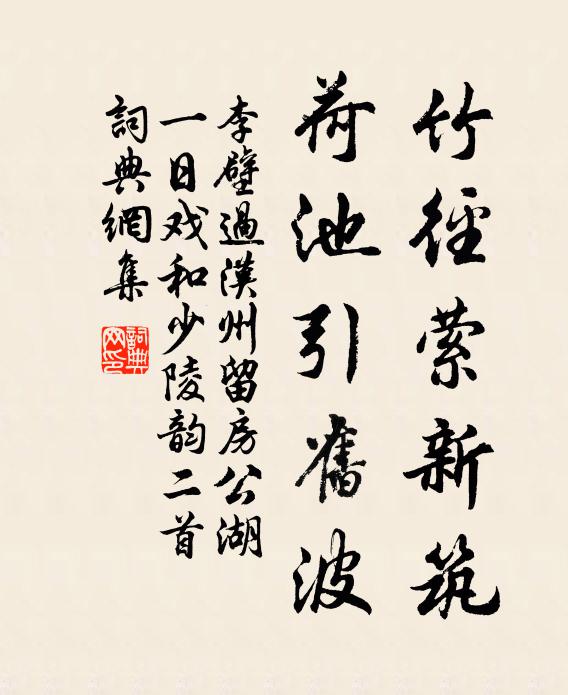 竹径萦新筑
荷池引舊波
李壁過漢州留房公湖
一日戏和少陵韵二首
詞典網集
詞典网印